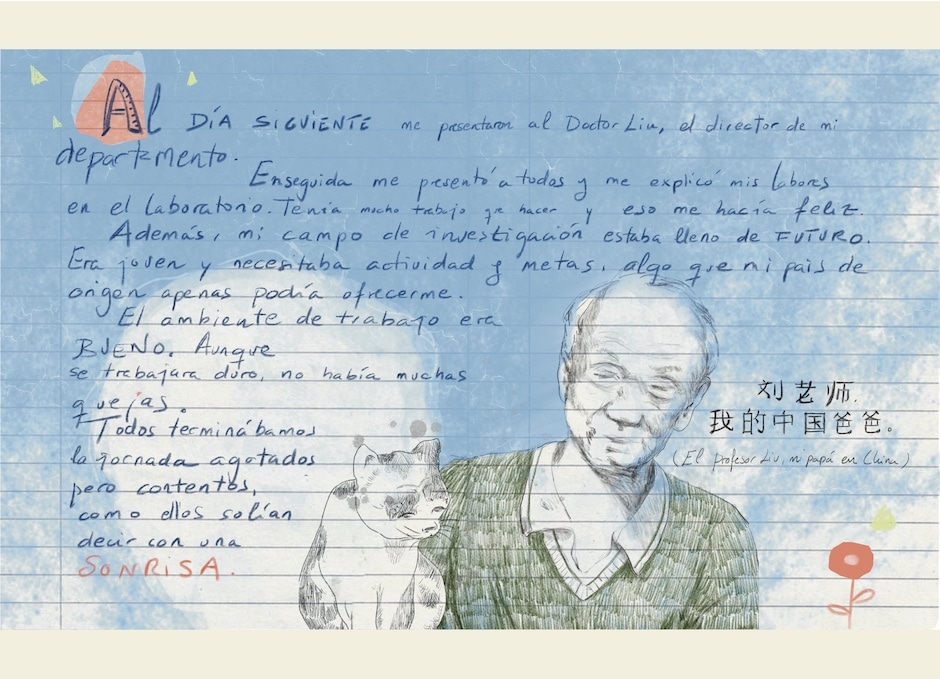 Al DÍA SIGUIENTE me presentaron al Doctor Liu, el director de mi
departamento.
Enseguida me presentó a todos y me explicó mis labores
en el laboratorio. Tenía mucho trabajo que hacer y eso me hacía feliz.
Además, mi campo de investigación estaba lleno de FUTURO.
Era joven y necesitaba actividad y metas, algo que mi país de
origen apenas podía ofrecerme.
El ambiente de trabajo era
BUENO. Aunque
se trabajara duro, no había muchas
quejas.
Todos terminábamos
la jornada agotados
pero contentos,
como ellos solían
decir con una
SONRISA.
刘老师.
我的中国爸爸。
(El profesor Liu, mi papá en China)